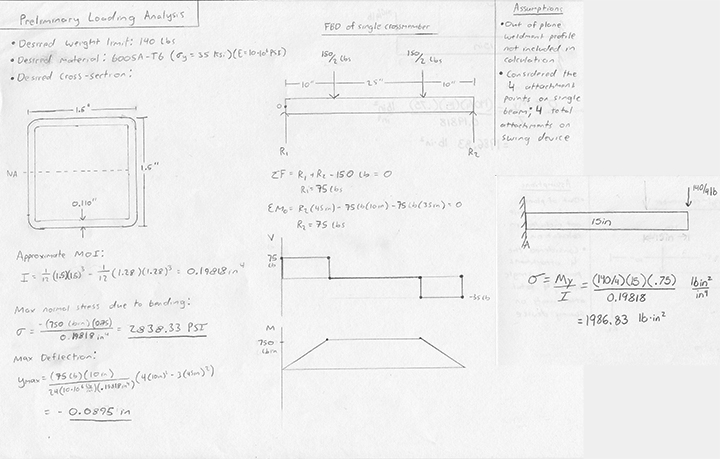 Preliminary Loading Analysis
• Desired weight limit: 140 lbs
• Desired material: 6005A-T6 (σy = 35 Ksi) (E=10·10⁶ PSI)
• Desired cross-section:
1.5"
NA
1.5"
0.110"
Approximate MoI:
I = 1/12 (1.5)(1.5)³ - 1/12 (1.28)(1.28)³ = 0.19818 in⁴
Max normal stress due to bending:
σ = -(750 lbin)(0.75) / 0.19818 in⁴ = 2838.33 PSI
Max Deflection:
ymax = (75 lb)(10in) / 24(10·10⁶)(.19818in⁴) (4(10in)² - 3(45in)²)
= - 0.0895 in
FBD of single crossmember
150/2 lbs
150/2 lbs
10"
25"
10"
0
R₁
R₂
ΣF = R₁ + R₂ - 150 lb = 0
R₁ = 75 lbs
ΣM₀ = R₂(45in) - 75lb(10in) - 75lb(35in) = 0
R₂ = 75 lbs
V
75
lb
M
750
lbin
Assumptions
• Out of plane
weldment profile
not included in
calculation
• Considered the
4 attachment
points on single
beam; 4 total
attachments on
swing device
140/4lb
15in
A
σ = My/I = (140/4)(15)(.75) / 0.19818 lbin²/in⁴
= 1986.83 lb·in²